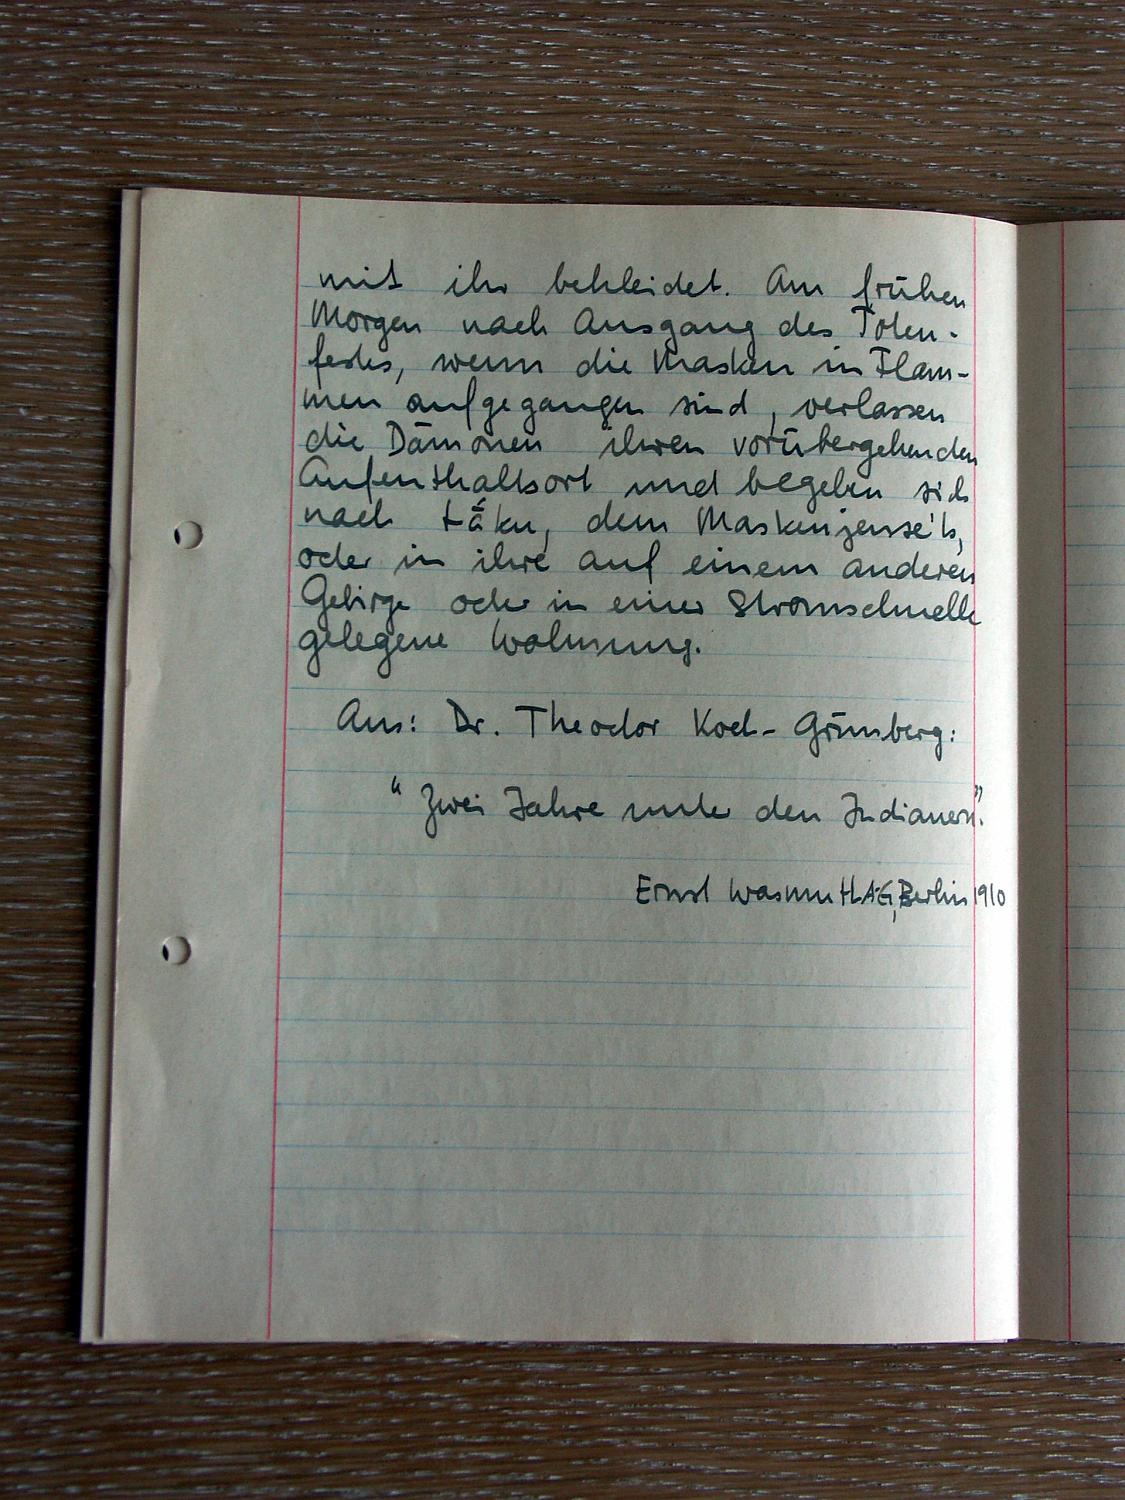 mit ihr bekleidet. Am frühen
Morgen nach Ausgang des Toten-
festes, wenn die Masken in Flam-
men aufgegangen sind, verlassen
die Dämonen ihren vorübergehenden
Aufenthaltsort und begeben sich
nach tā́ku, dem Maskenjenseits,
oder in ihre auf einem anderen
Gebirge oder in einer Stromschnelle
gelegene Wohnung.
Aus: Dr. Theodor Koch-Grünberg:
"Zwei Jahre unter den Indianern".
Ernst Wasmuth A.G, Berlin 1910